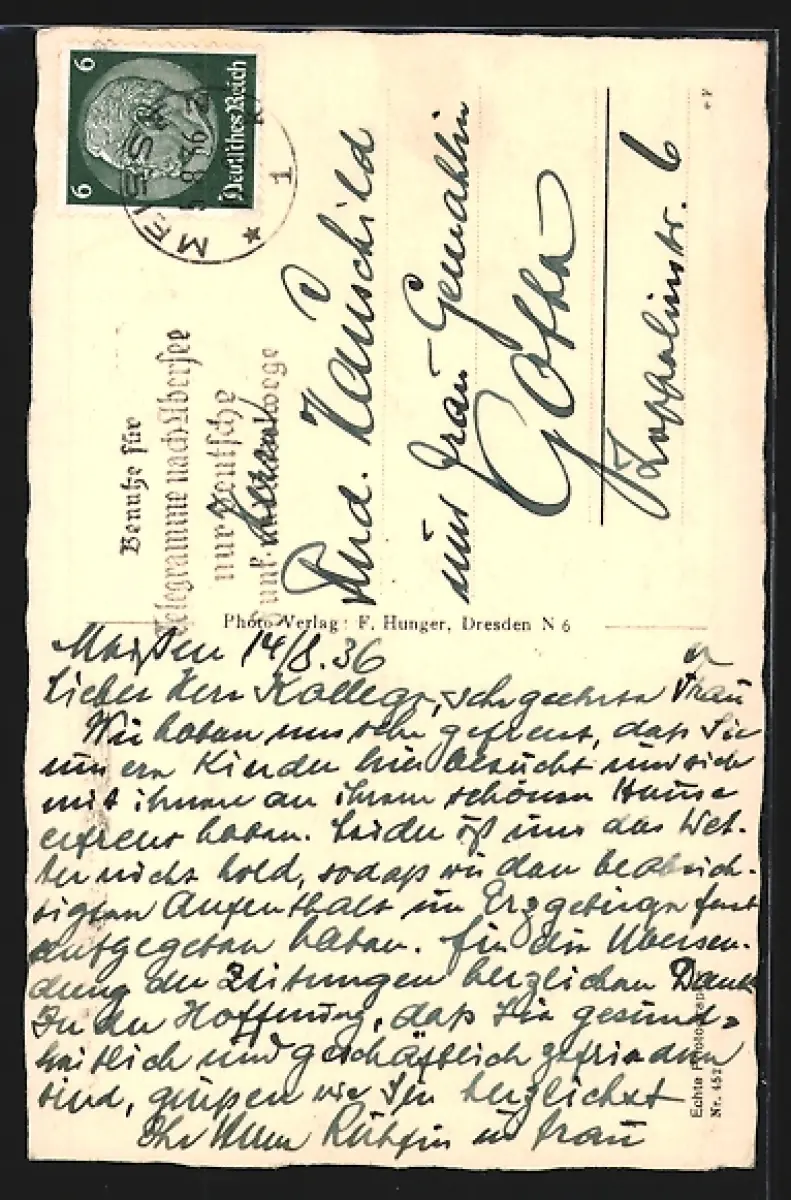 6
6
Deutsches Reich
MEISSEN
8.36
1
Benutze für
Telegramme nach Übersee
nur Deutsche
Funk- wege
Herrn
Ferd. Hauschild
und Frau Gemahlin
Gotha
Zeppelinstr. 6
Photo-Verlag: F. Hunger, Dresden N 6
Meißen 14/8.36
Lieber Herr Kollege, sehr geehrte Frau
Wir haben uns sehr gefreut, daß Sie
unsern Kinder hier besucht und sich
mit ihnen an ihrem schönen Hause
erfreut haben. Leider ist uns das Wet-
ter nicht hold, sodaß wir den beabsich-
tigten Aufenthalt im Erzgebirge fast
aufgegeben haben. Für die Übersen-
dung der Zeitungen herzlichen Dank
In der Hoffnung, daß Sie gesund-
heitlich und geschäftlich zufrieden
sind, grüßen wir Sie herzlichst
Ihr u Frau
Echte Photographie
Nr. 452